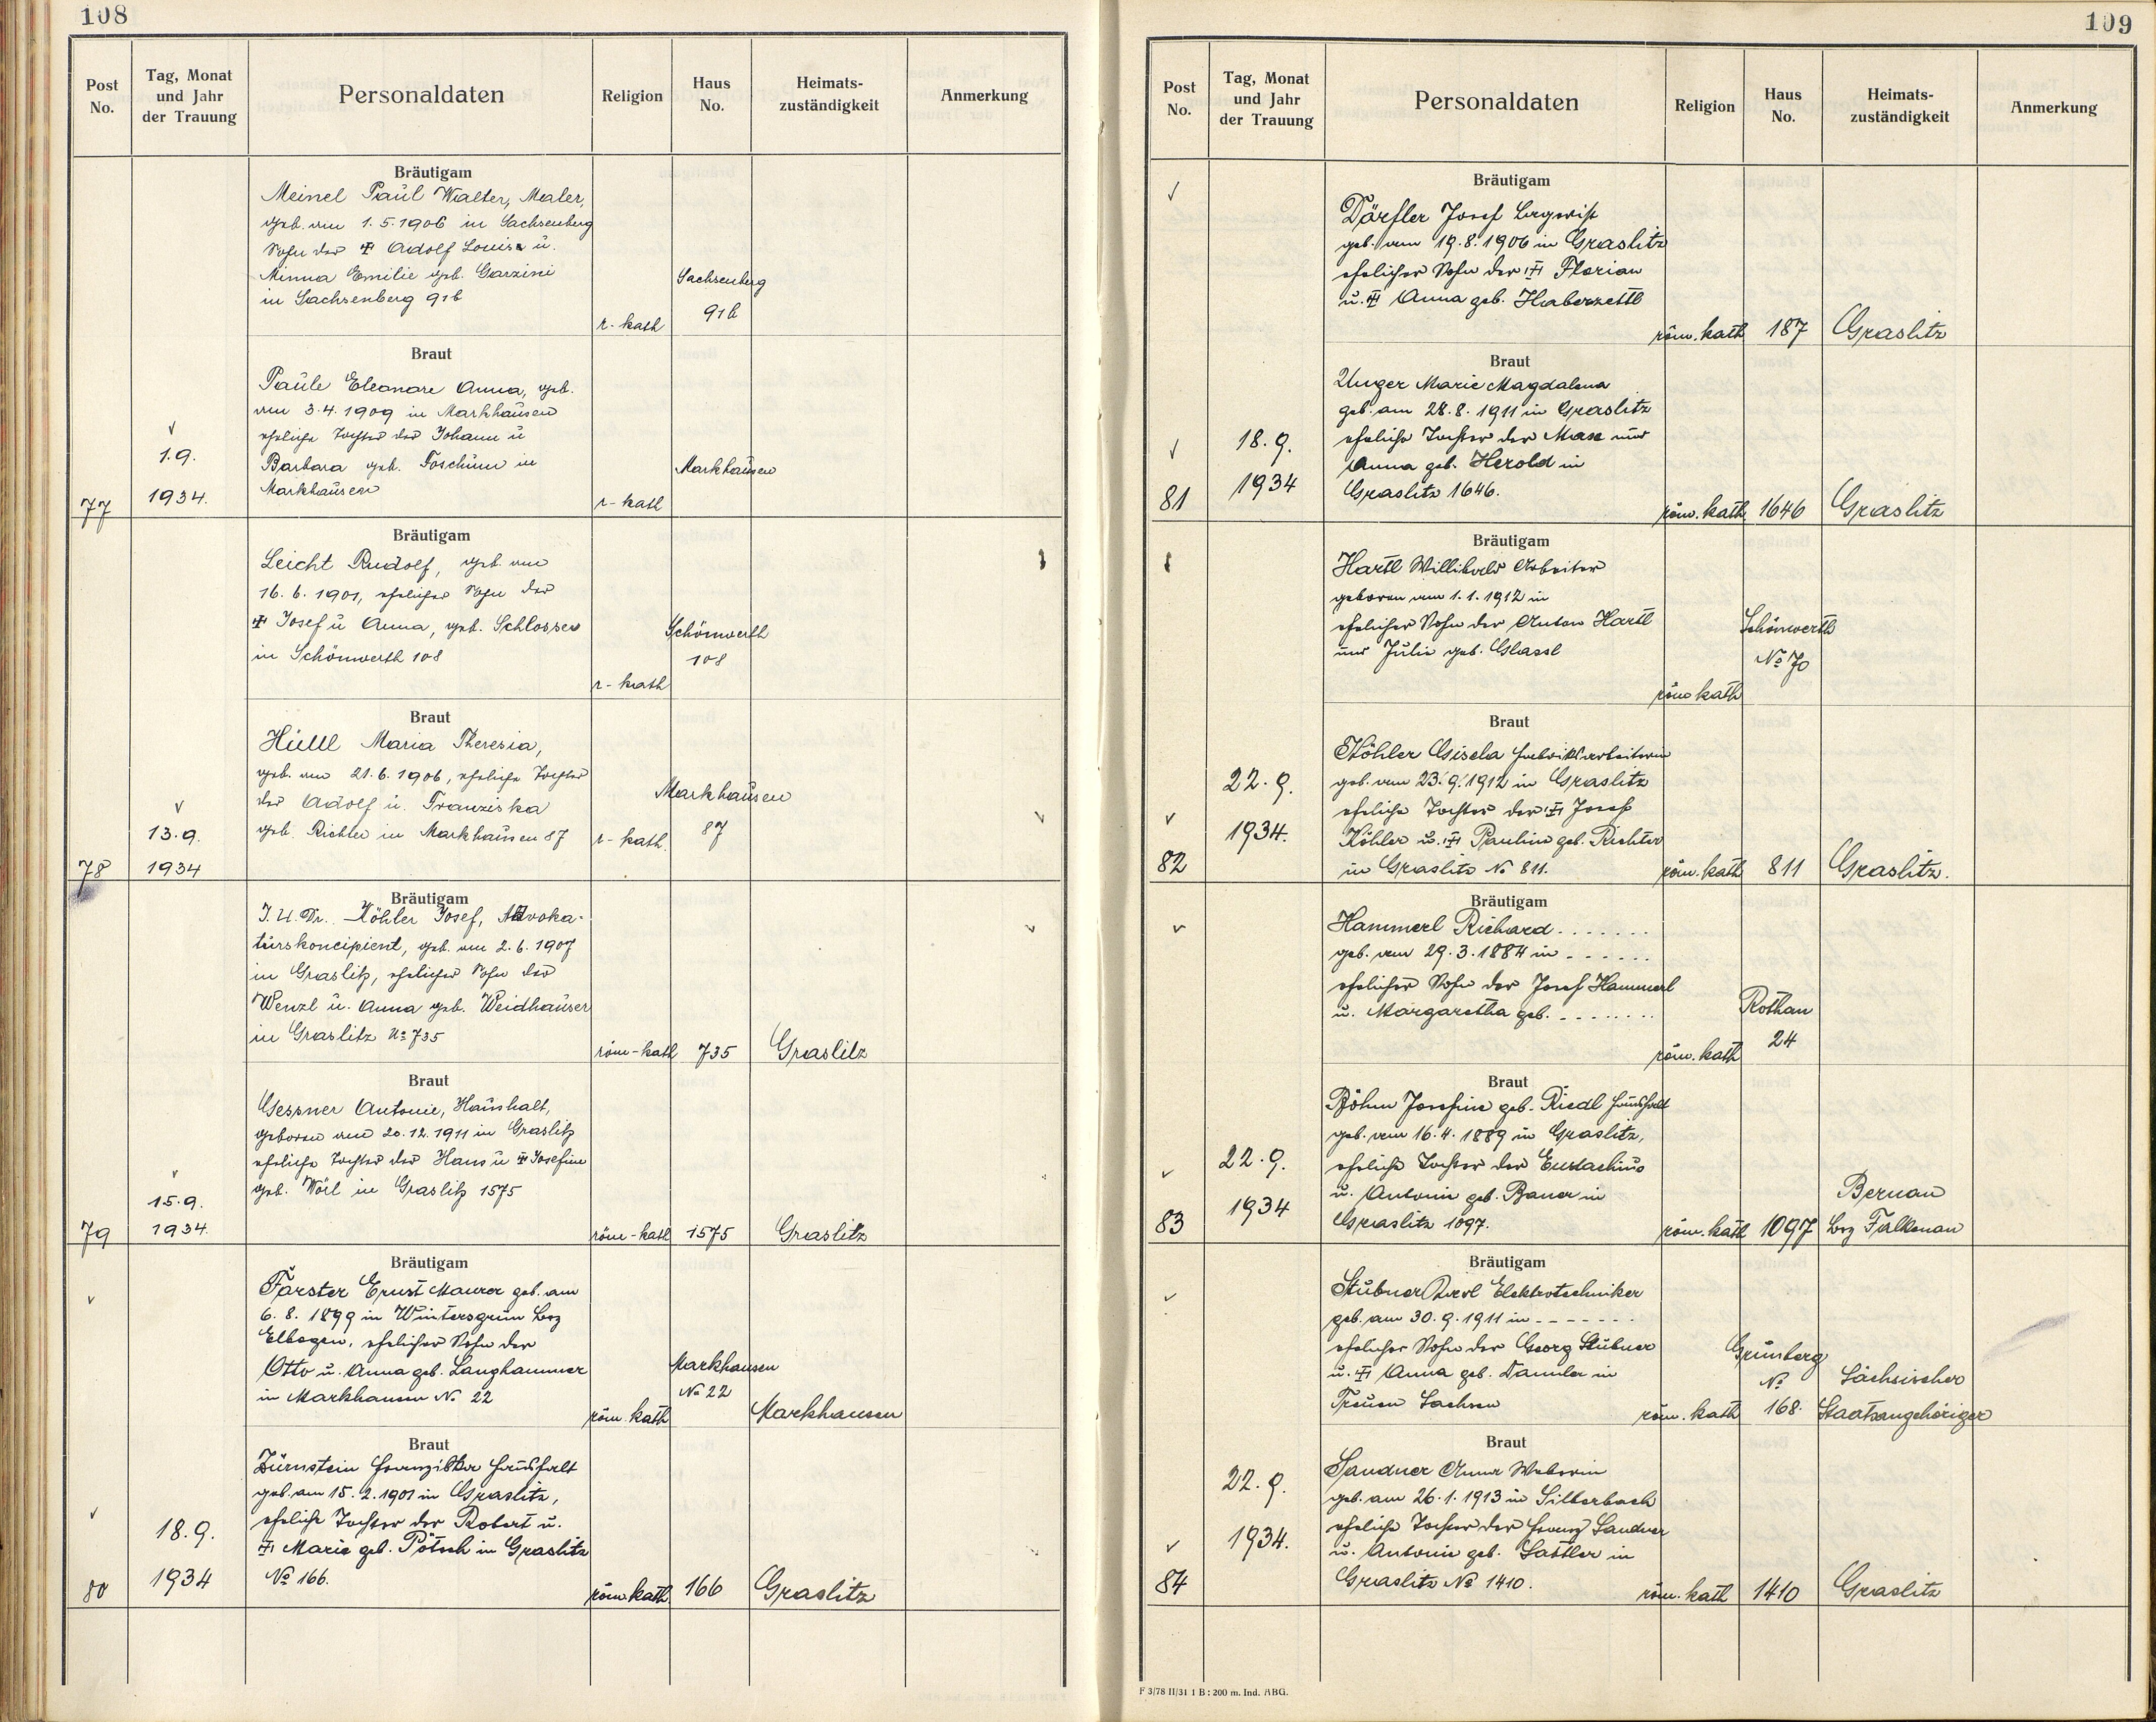 108
Post No.
Tag, Monat und Jahr der Trauung
Personaldaten
Religion
Haus No.
Heimats-zuständigkeit
Anmerkung
Bräutigam
Meinel Paul Walter, Maler,
geb. am 1.5.1906 in Sachsenberg
Sohn des ✝ Adolf Louis u.
Minna Emilie geb. Garzini
in Sachsenberg 91b
r-kath
Sachsenberg
91b
Braut
Paule Eleonore Anna, geb.
am 3.4.1909 in Markhausen
eheliche Tochter des Johann u
Barbara geb. in
Markhausen
r-kath
Markhausen
77
1.9.
1934.
Bräutigam
Leicht Rudolf, geb. am
16.6.1901, ehelicher Sohn des
✝ Josef u Anna, geb. Schlosser
in Schönwerth 108
r-kath
Schönwerth
108
Braut
Hüttl Maria Theresia,
geb. am 21.6.1906, eheliche Tochter
des Adolf u. Franziska
geb. Richter in Markhausen 87
r-kath.
Markhausen
87
78
13.9.
1934
Bräutigam
J.U.Dr. Köhler Josef, Advoka-
turskoncipient, geb. am 2.6.1907
in Graslitz, ehelicher Sohn des
Wenzl u. Anna geb. Weidhauser
in Graslitz No 735
röm-kath
735
Graslitz
Braut
Gessner Antonie, Haushalt,
geboren am 20.12.1911 in Graslitz
eheliche Tochter des Hans u ✝ Josefine
geb. in Graslitz 1575
röm-kath
1575
Graslitz
79
15.9.
1934.
Bräutigam
Förster Ernst Maurer geb. am
6.8.1899 in Wintersgrün Bez
Elbogen, ehelicher Sohn der
Otto u. Anna geb. Langhammer
in Markhausen No 22
röm.kath
Markhausen
No 22
Markhausen
Braut
Zürnstein Franziska Haushalt
geb. am 15.2.1901 in Graslitz,
eheliche Tochter der Robert u.
✝ Marie geb. Pötsch in Graslitz
No 166.
röm.kath
166
Graslitz
80
18.9.
1934
109
Post No.
Tag, Monat und Jahr der Trauung
Personaldaten
Religion
Haus No.
Heimats-zuständigkeit
Anmerkung
Bräutigam
Dörfler Josef
geb. am 19.8.1906 in Graslitz
ehelicher Sohn der ✝ Florian
u. ✝ Anna geb. Haberzettl
röm.kath
187
Graslitz
Braut
Unger Marie Magdalena
geb. am 28.8.1911 in Graslitz
eheliche Tochter der Max und
Anna geb. Herold in
Graslitz 1646.
röm.kath.
1646
Graslitz
81
18.9.
1934
Bräutigam
Hartl Willibald Arbeiter
geboren am 1.1.1912 in
ehelicher Sohn der Anton Hartl
und Julie geb. Glassl
röm kath
Schönwerth
No 70
Braut
Köhler Gisela Fabriksarbeiterin
geb. am 23.9.1912 in Graslitz
eheliche Tochter der ✝ Josef
Köhler u. ✝ Pauline geb. Richter
in Graslitz No 811.
röm.kath
811
Graslitz.
82
22.9.
1934.
Bräutigam
Hammerl Richard.......
geb. am 29.3.1884 in ......
ehelicher Sohn der Josef Hammerl
u. Margaretha geb. ........
röm.kath
Rothau
24
Braut
Böhm Josefine geb. Riedl Haushalt
geb. am 16.4.1889 in Graslitz,
eheliche Tochter der Eustachius
u. Antonie geb. Bauer in
Graslitz 1097.
röm.kath
1097
Bernau
Bez Falkenau
83
22.9.
1934
Bräutigam
Stübner Karl Elektrotechniker
geb. am 30.9.1911 in -------
ehelicher Sohn der Georg Stübner
u. ✝ Anna geb. in
Treuen Sachsen
röm.kath
Grünberg
No
168.
Sächsischer
Staatsangehöriger
Braut
Sandner Anna Weberin
geb. am 26.1.1913 in Silberbach
eheliche Tochter der Franz Sandner
u. Antonie geb. Sattler in
Graslitz No 1410.
röm.kath
1410
Graslitz
84
22.9.
1934.
F 3/78 II/31 1 B : 200 m. Ind. ABG.